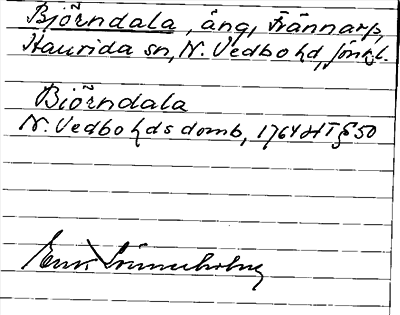 Björndala, äng, Frännarp,
Haurida sn, N. Vedbo hd, Jönk.l.
Biörndala
N. Vedbo hds domb, 1764 HT § 50